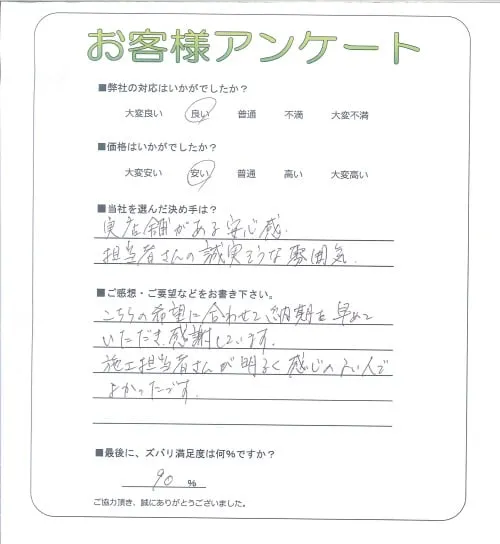 お客様アンケート
■弊社の対応はいかがでしたか？
大変良い 良い 普通 不満 大変不満
■価格はいかがでしたか？
大変安い 安い 普通 高い 大変高い
■当社を選んだ決め手は？
実店舗がある安心感.
担当者さんの誠実そうな雰囲気.
■ご感想・ご要望などをお書き下さい。
こちらの希望に合わせて、納期を早めて
いただき、感謝しています.
施工担当者さんが明るく感じのよい人で
よかったです.
■最後に、ズバリ満足度は何％ですか？
90 ％
ご協力頂き、誠にありがとうございました。